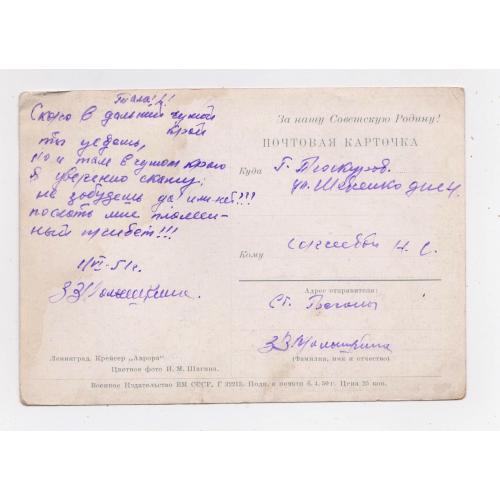 Скоро в дальний чужой
край
ты уедешь,
но и там в чужом краю
я уверенно скажу:
не забудешь да или нет???
послать мне пламен-
ный привет!!!
11/VI-51г.
За нашу Советскую Родину!
ПОЧТОВАЯ КАРТОЧКА
Куда г. Проскуров
ул. Шевченко дом 4
Кому
Адрес отправителя:
ст.
(Фамилия, имя и отчество)
Ленинград. Крейсер „Аврора"
Цветное фото И. М. Шагина.
Военное Издательство ВМ СССР, Г 32215. Подп. к печати 6. 4. 50 г. Цена 25 коп.